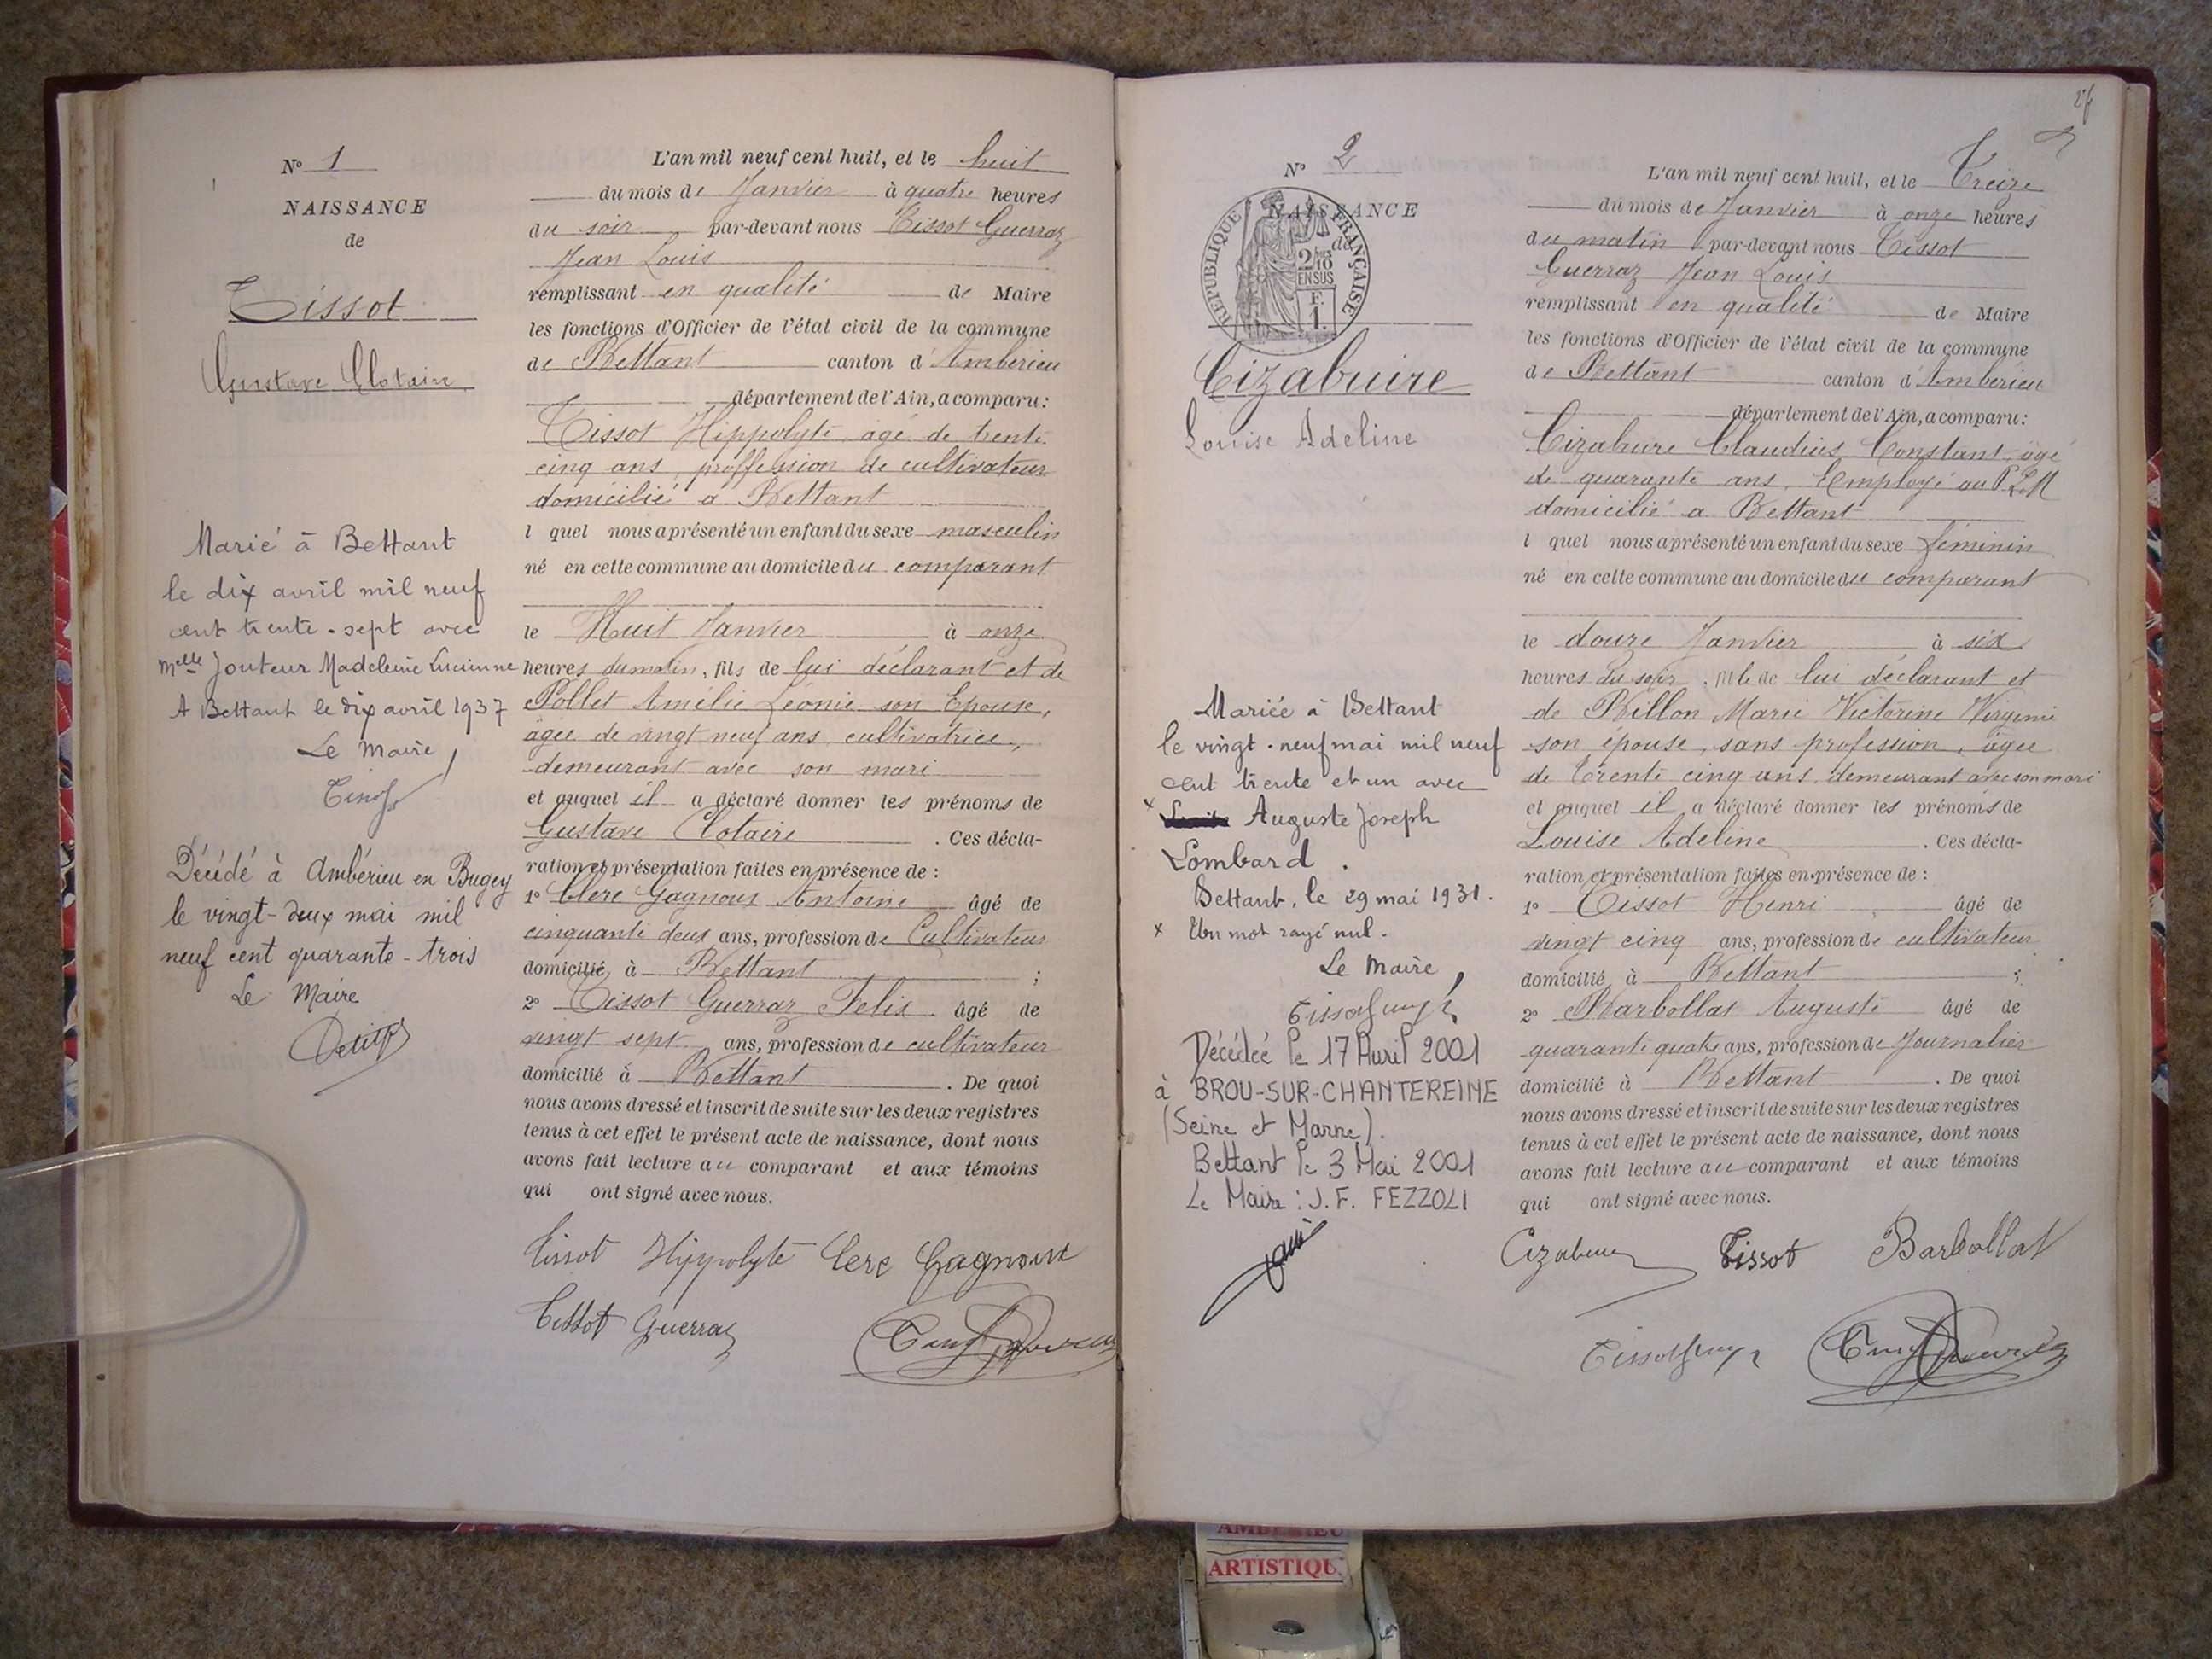 N° 1
NAISSANCE
de
Tissot
Gustave Clotaire
Marié à Bettant
le dix avril mil neuf
cent trente-sept avec
Melle Jouteur Madeleine Lucienne
A Bettant le dix avril 1937
Le Maire,
Décédé à Ambérieu en Bugey
le vingt-deux mai mil
neuf cent quarante-trois
Le Maire
L'an mil neuf cent huit, et le huit
du mois de Janvier à quatre heures
du soir par-devant nous Tissot Guerraz
Jean Louis
remplissant en qualité de Maire
les fonctions d'Officier de l'état civil de la commune
de Bettant canton d'Ambérieu
département de l'Ain, a comparu:
Tissot Hippolyte agé de trente
cinq ans, proffession de cultivateur
domicilié a Bettant
l quel nous a présenté un enfant du sexe masculin
né en cette commune au domicile du comparant
le Huit Janvier à onze
heures du matin, fils de lui déclarant et de
Pollet Amélie Léonie son Epouse,
agée de vingt neuf ans cultivatrice,
demeurant avec son mari
et auquel il a déclaré donner les prénoms de
Gustave Clotaire. Ces décla-
ration et présentation faites en présence de :
1° Clerc Gagnoux Antoine âgé de
cinquante deux ans, profession de Cultivateur
domicilié à Bettant ;
2° Tissot Guerraz Felix âgé de
vingt sept ans, profession de cultivateur
domicilié à Bettant. De quoi
nous avons dressé et inscrit de suite sur les deux registres
tenus à cet effet le présent acte de naissance, dont nous
avons fait lecture au comparant et aux témoins
qui ont signé avec nous.
Tissot Hippolyte Clerc Gagnoux
Tissot Guerraz
N° 2
NAISSANCE
de
REPUBLIQUE FRANÇAISE
2/10
EN SUS
F.
1.
Cizabuire
Louise Adeline
Mariée à Bettant
le vingt-neuf mai mil neuf
cent trente et un avec
x Auguste Joseph
Lombard.
Bettant, le 29 mai 1931.
x Un mot rayé nul.
Le Maire,
Décédée le 17 Avril 2001
à BROU-SUR-CHANTEREINE
(Seine et Marne).
Bettant le 3 Mai 2001
Le Maire : J.F. FEZZOLI
L'an mil neuf cent huit, et le Treize
du mois de Janvier à onze heures
du matin par-devant nous Tissot
Guerraz Jean Louis
remplissant en qualité de Maire
les fonctions d'Officier de l'état civil de la commune
de Bettant canton d'Ambérieu
département de l'Ain, a comparu:
Cizabuire Claudius Constant agé
de quarante ans, Employé au P.L.M
domicilié a Bettant
l quel nous a présenté un enfant du sexe féminin
né en cette commune au domicile du comparant
le douze Janvier à six
heures du soir, fille de lui déclarant et
de Billon Marie Victorine Virginie
son épouse, sans profession, agée
de trente cinq ans demeurant avec son mari
et auquel il a déclaré donner les prénoms de
Louise Adeline. Ces décla-
ration et présentation faites en présence de :
1° Tissot Henri âgé de
vingt cinq ans, profession de cultivateur
domicilié à Bettant ;
2° Barbollat Auguste âgé de
quarante quatre ans, profession de Journalier
domicilié à Bettant. De quoi
nous avons dressé et inscrit de suite sur les deux registres
tenus à cet effet le présent acte de naissance, dont nous
avons fait lecture au comparant et aux témoins
qui ont signé avec nous.
Cizabuire Tissot Barbollat
AMBERIEU
ARTISTIQU